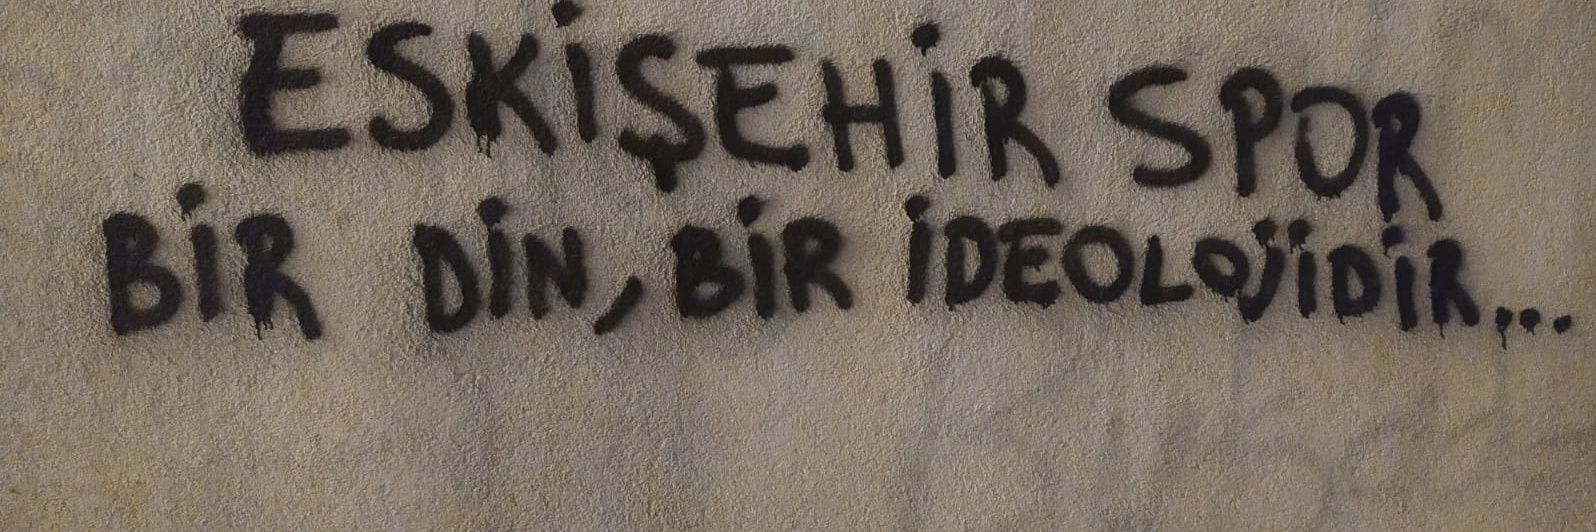 ESKİŞEHİR SPOR
BİR DİN, BİR İDEOLOJİDİR...